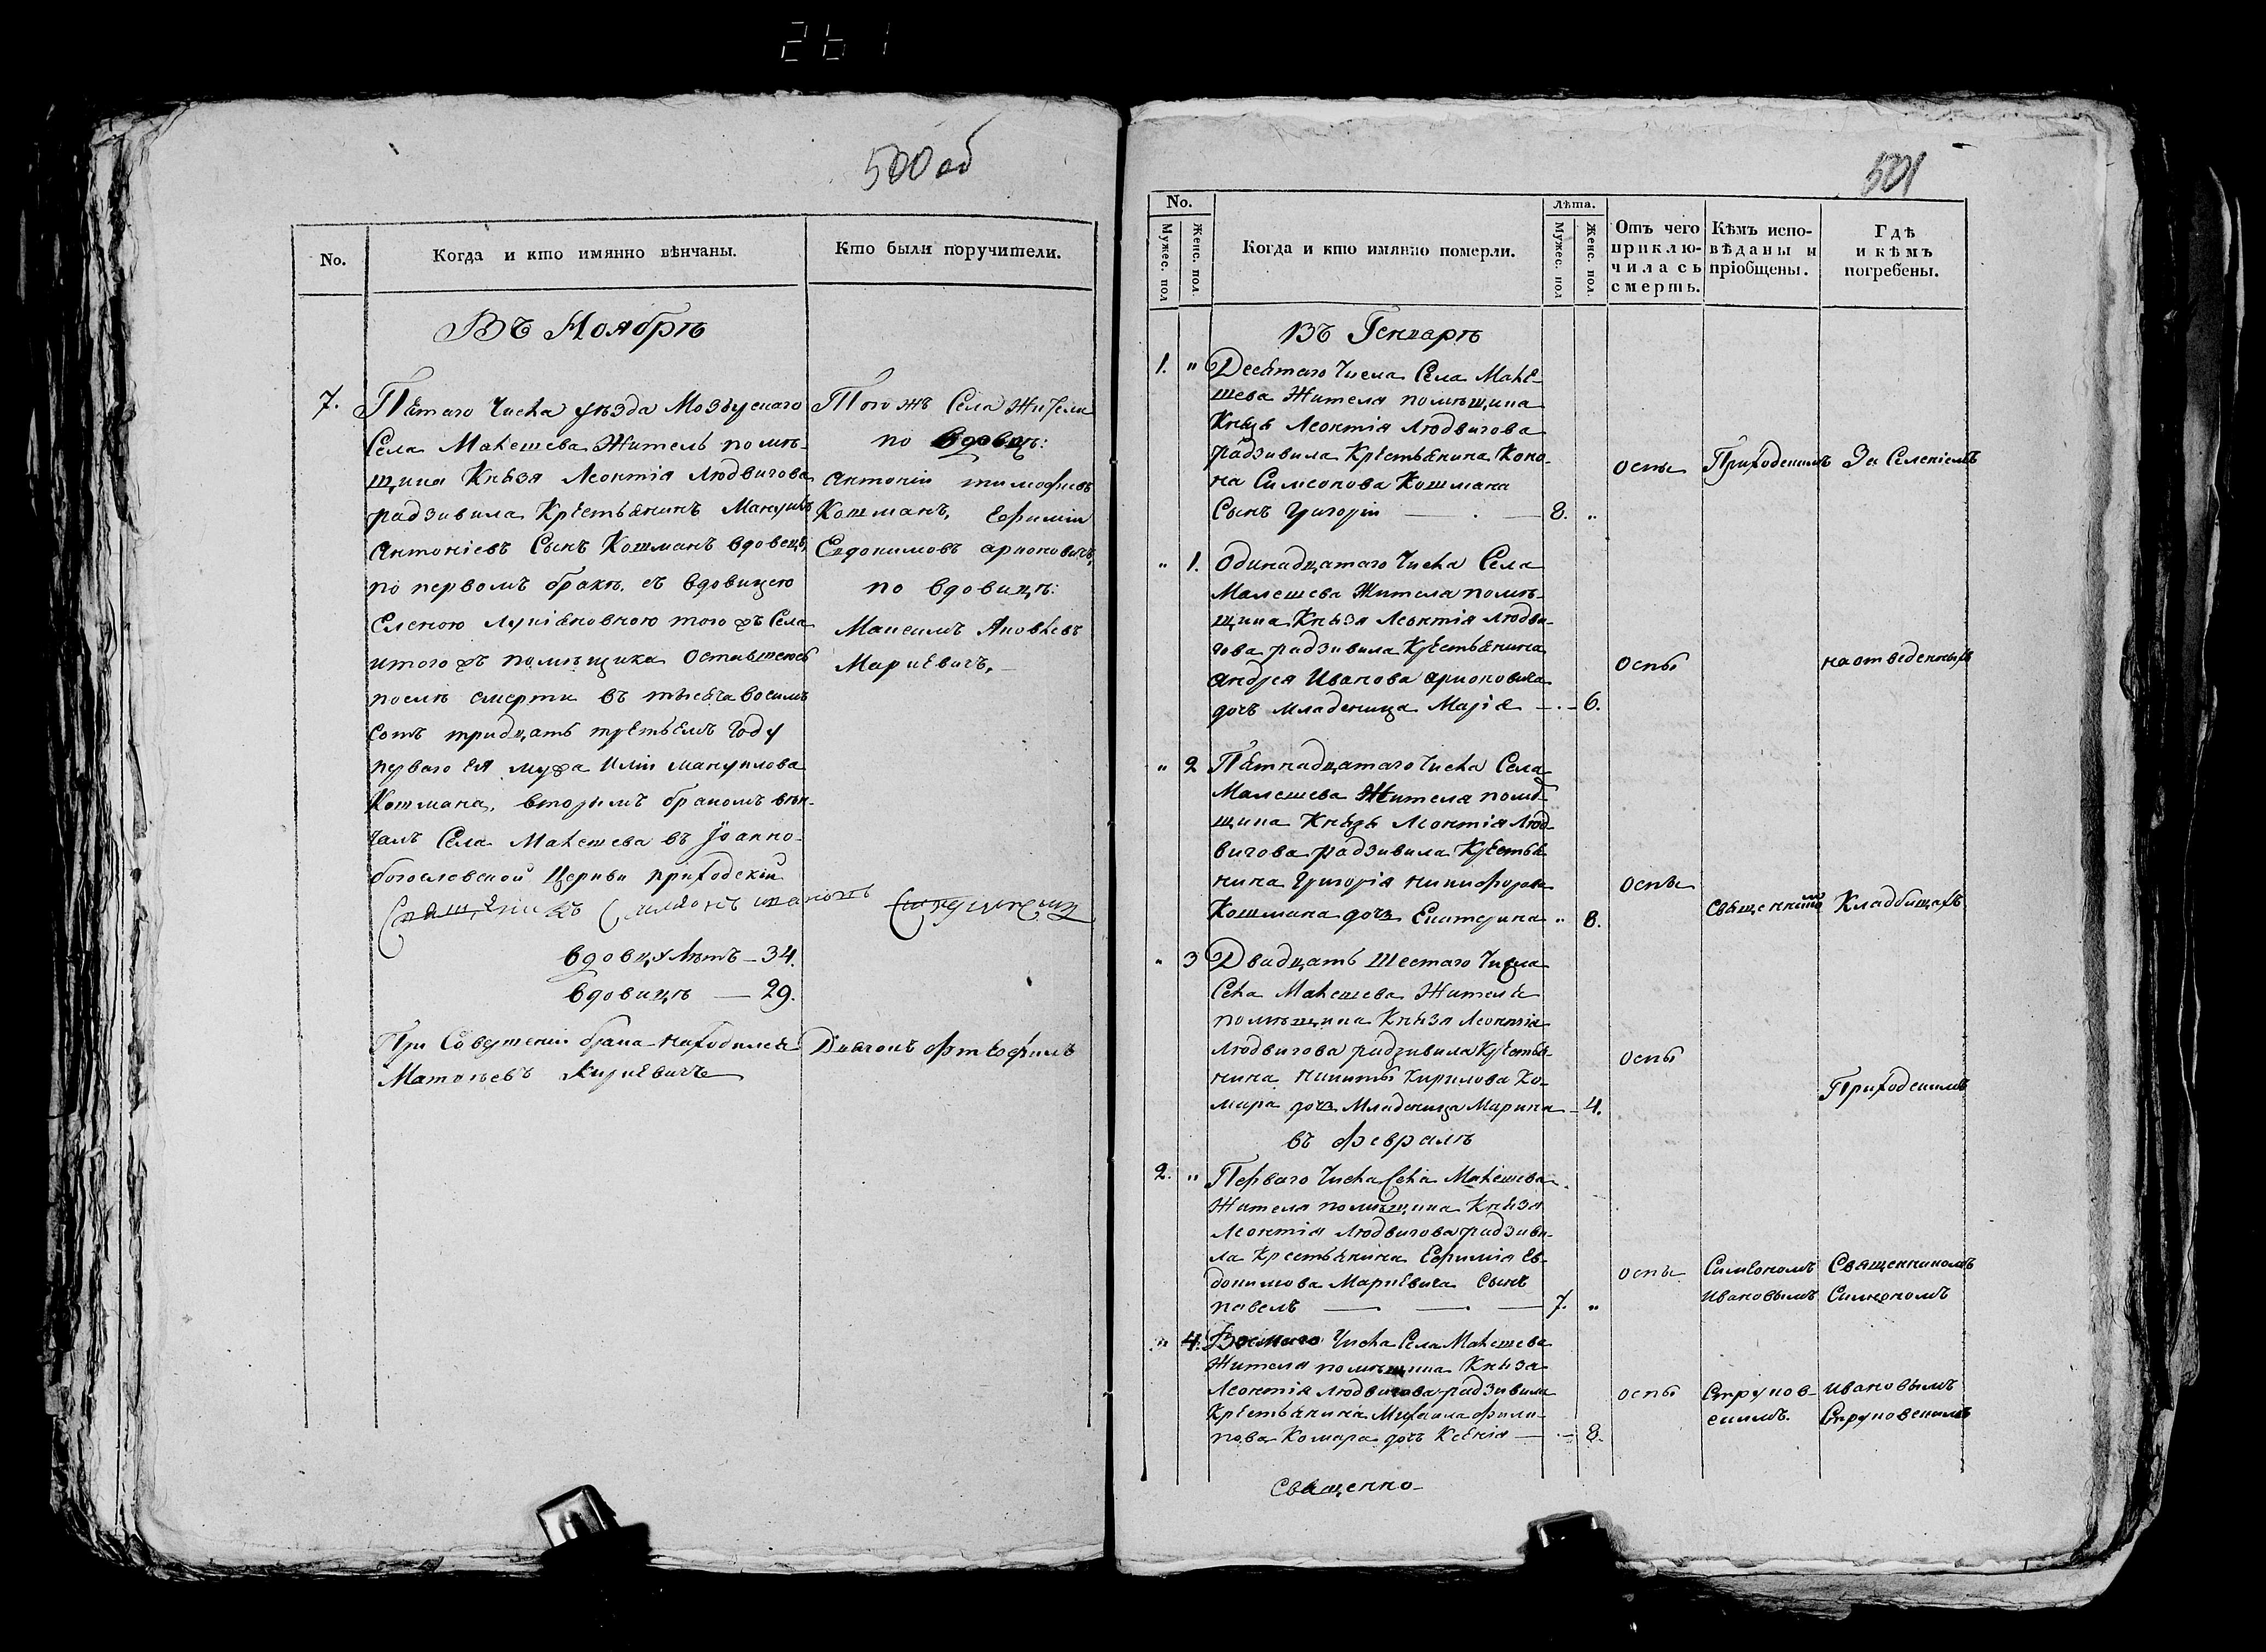 261
500 об
No.
Когда и кто имянно вѣнчаны.
Кто были поручители.
Въ Ноябрѣ
7.
Пятаго Числа уѣзда Мозырскаго
Села Малешева Житель помѣ-
щика Князя Леонтія Людвигова
радзивила Крестьянинъ Мануилъ
Антоніевъ Сынъ Кошманъ вдовецъ,
по первомъ бракѣ, съ вдовицею
Еленою Лукіяновною того жъ Села
итого жъ помѣщика Оставшеюсь
послѣ смерти въ тысяча восемь
сотъ тридцать третьемъ Году
перваго Ея мужа Иліи мануилова
Кошмана, вторымъ бракомъ вѣн-
чалъ Села Малешева въ Іоанно-
богословской Церкви приходскій
Священникъ Симеонъ Ивановъ
вдовцу Лѣтъ – 34.
вдовицѣ — 29.
При Совершеніи брака находился
Матѳѣевъ
Того жъ Села Жители
по вдовцѣ:
Антоній тимофіевъ
Кошманъ, Ефимій
Евдокимовъ
по вдовицѣ:
Максимъ Яковлевъ
Маркевичъ,
Діаконъ
501
No.
Мужес. пол
Женс. пол.
Когда и кто имянно померли.
Лѣта.
Мужес. пол
Женс. пол.
Отъ чего приклю-чилась смерть.
Кѣмъ испо-вѣданы и пріобщены.
Гдѣ и кѣмъ погребены.
Въ Генварѣ
1. "
Десятаго Числа Села Мале-
шева Жителя помѣщика
Князя Леонтія Людвигова
радзивила Крестьянина Коно-
на Симеонова Кошмана
Сынъ Григорій — . — 8. "
оспы Приходскимъ За Селеніемъ
" 1.
Одинадцатаго Числа Села
Малешева Жителя помѣ-
щика Князя Леонтія Людви-
гова радзивила Крестьянина
Андрея Иванова
дочь младеница Марія — . – 6.
оспы на отведенныхъ
" 2
Пятнадцатаго Числа Села
Малешева Жителя помѣ-
щика Князя Леонтія Люд-
вигова радзивила Крестья-
нина Григорія никифорова
Кошмана дочь Екатерина " 8.
оспы Священникомъ Кладбищахъ
" 3
Двадцать Шестаго Числа
Села Малешева Жителя
помѣщика Князя Леонтія
Людвигова радзивила Крестья-
нина Никиты Кирилова Ко-
мара дочь Младеница Марина – 4.
оспы Приходскимъ
въ февралѣ
2. "
Перваго Числа Села Малешева
Жителя помѣщика Князя
Леонтія Людвигова радзиви-
ла Крестьянина Ефимія Ев-
докимова Маркевича Сынъ
павелъ — . — 7. "
оспы Симеономъ Священникомъ
Ивановымъ Симеономъ
" 4.
Восмаго Числа Села Малешева
Жителя помѣщика Князя
Леонтія Людвигова радзивила
Крестьянина Михаила фили-
пова Комара дочь Ксенія — . – 8.
оспы Струков- Ивановымъ
скимъ. Струковскимъ
Священно-